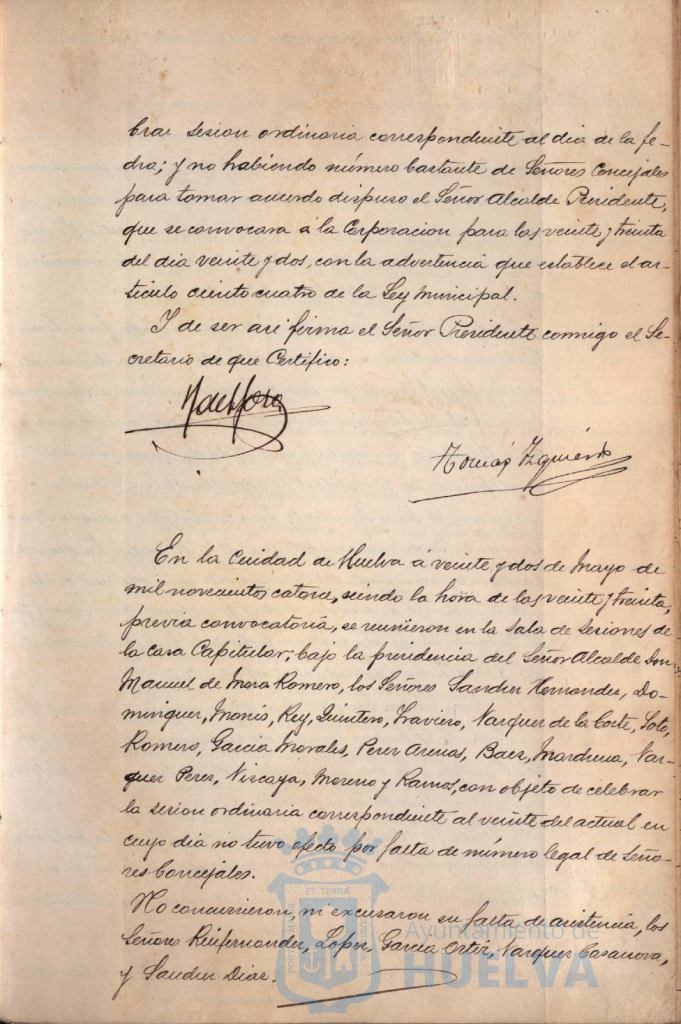 brar sesion ordinaria correspondiente al dia de la fe-
cha; y no habiendo número bastante de Señores Concejales
para tomar acuerdo dispuso el Señor Alcalde Presidente,
que se convocara á la Corporacion para las veinte y treinta
del dia veinte y dos, con la advertencia que establece el ar-
tículo ciento cuatro de la Ley Municipal.
Y de ser asi firma el Señor Presidente conmigo el Se-
cretario de que Certifico:
M de Mora
Tomás Izquierdo
En la Ciudad de Huelva á veinte y dos de Mayo de
mil novecientos catorce, siendo la hora de las veinte y treinta,
previa convocatoria, se reunieron en la Sala de Sesiones de
la casa Capitular, bajo la presidencia del Señor Alcalde Don
Manuel de Mora Romero, los Señores Sanchez Hernandez, Do-
minguez, Monis, Rey, Quintero, Traviero, Vazquez de la Corte, Soto,
Romero, García Morales, Perez Arenas, Baez, Marchena, Vaz-
quez Perez, Vizcaya, Moreno y Ramos, con objeto de celebrar
la sesion ordinaria correspondiente al veinte del actual en
cuyo dia no tuvo efecto por falta de número legal de Seño-
res Concejales.
No concurrieron, ni excusaron su falta de asistencia, los
Señores Ruifernandez, Lopez, García Ortiz, Vazquez Casanova,
y Sanchez Diaz.
ET TERRÆ
Ayuntamiento de
HUELVA